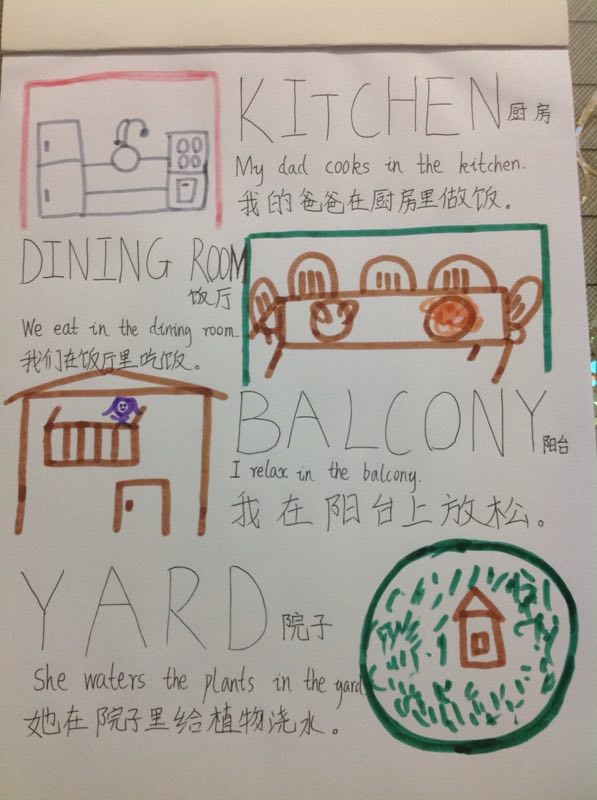 KITCHEN 厨房
My dad cooks in the kitchen.
我的爸爸在厨房里做饭。
DINING ROOM
饭厅
We eat in the dining room.
我们在饭厅里吃饭。
BALCONY 阳台
I relax in the balcony.
我在阳台上放松。
YARD 院子
She waters the plants in the yard
她在院子里给植物浇水。